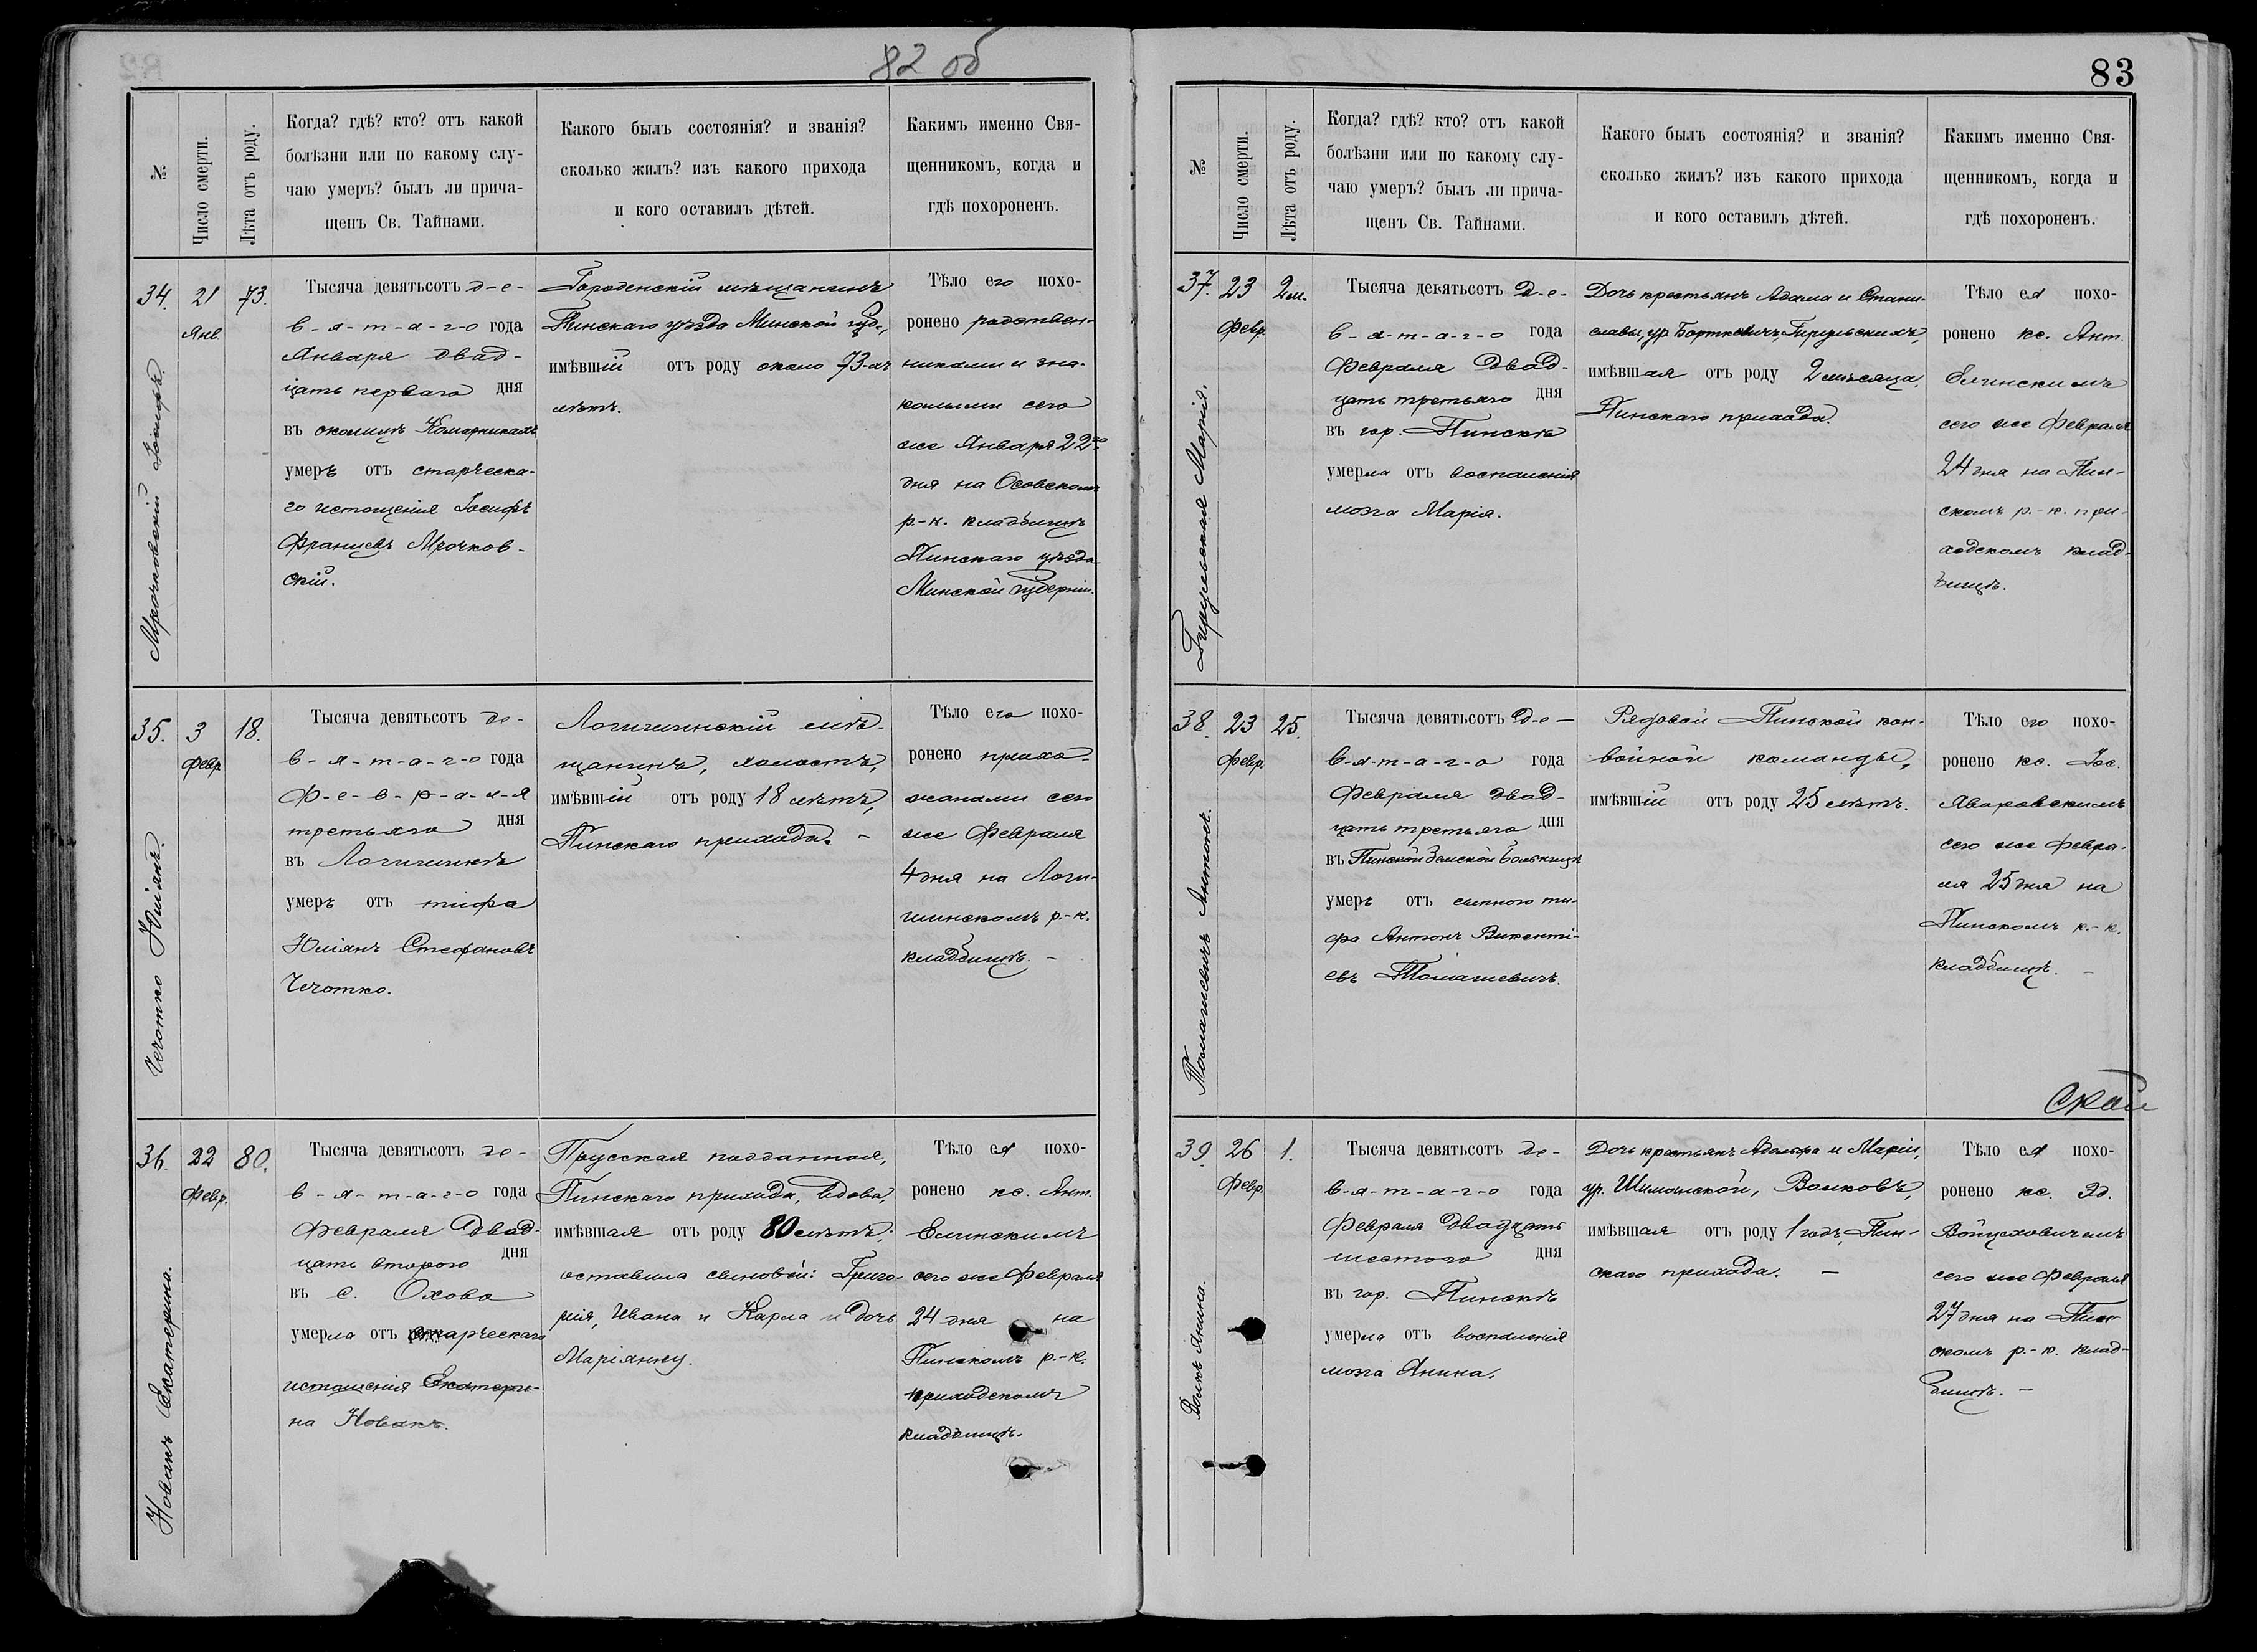 82 об
№
Число смерти.
Лѣта отъ роду.
Когда? гдѣ? кто? отъ какой
болѣзни или по какому слу-
чаю умеръ? былъ ли прича-
щенъ Св. Тайнами.
Какого былъ состоянія? и званія?
сколько жилъ? изъ какого прихода
и кого оставилъ дѣтей.
Какимъ именно Свя-
щенникомъ, когда и
гдѣ похороненъ.
34.
21
Янв.
73.
Мрочковскій Іосифъ.
Тысяча девятьсотъ д-е-
в-я-т-а-г-о года
Января двад-
цать перваго дня
въ околицѣ Комарникахъ
умеръ отъ старческа-
го истощенія Іосифъ
Францевъ Мрочков-
скій.
Городенскій мѣщанинъ
Пинскаго уѣзда Минской губ.,
имѣвшій отъ роду около 73-хъ
лѣтъ.
Тѣло его похо-
ронено родствен-
никами и зна-
комыми сего
же Января 22го
дня на Осовскомъ
р.-к. кладбищѣ
Пинскаго уѣзда
Минской губерніи.
35.
3
Февр
18.
Чечотко Юліанъ.
Тысяча девятьсотъ де-
в-я-т-а-г-о года
Ф-е-в-р-а-л-я
третьяго дня
въ Логишинѣ
умеръ отъ тифа
Юліанъ Стефановъ
Чечотко.
Логишинскій мѣ-
щанинъ, холостъ,
имѣвшій отъ роду 18 лѣтъ,
Пинскаго прихода. -
Тѣло его похо-
ронено прихо-
жанами сего
же Февраля
4 дня на Логи-
шинскомъ р.-к.
кладбищѣ. -
36.
22
Февр.
80.
Новакъ Екатерина.
Тысяча девятьсотъ де-
в-я-т-а-г-о года
Февраля двад-
цать второго дня
въ с. Охово
умерла отъ старческаго
истощенія Екатери-
на Новакъ.
Прусская подданная,
Пинскаго прихода, вдова,
имѣвшая отъ роду 80 лѣтъ;
оставила сыновей: Григо-
рія, Ивана и Карла и дочь
Маріянну.
Тѣло ея похо-
ронено кс. Ант.
Елинскимъ
сего же Февраля
24 дня на
Пинскомъ р.-к.
приходскомъ
кладбищѣ.
83
№
Число смерти.
Лѣта отъ роду.
Когда? гдѣ? кто? отъ какой
болѣзни или по какому слу-
чаю умеръ? былъ ли прича-
щенъ Св. Тайнами.
Какого былъ состоянія? и званія?
сколько жилъ? изъ какого прихода
и кого оставилъ дѣтей.
Какимъ именно Свя-
щенникомъ, когда и
гдѣ похороненъ.
37.
23
Февр.
2 м.
Марія.
Тысяча девятьсотъ д-е-
в-я-т-а-г-о года
Февраля двад-
цать третьяго дня
въ гор. Пинскѣ
умерла отъ воспаленія
мозга Марія.
Дочь крестьянъ Адама и Стани-
славы, ур. Борткевичъ,
имѣвшая отъ роду 2 мѣсяца,
Пинскаго прихода.
Тѣло ея похо-
ронено кс. Ант.
Елинскимъ
сего же Февраля
24 дня на Пин-
скомъ р.-к. при-
ходскомъ клад-
бищѣ.
38.
23
Февр.
25.
Томашевичъ Антонъ.
Тысяча девятьсотъ д-е-
в-я-т-а-г-о года
Февраля двад-
цать третьяго дня
въ Пинской Земской больницѣ
умеръ отъ сыпного ти-
фа Антонъ Викенті-
евъ Томашевичъ.
Рядовой Пинской кон-
войной команды,
имѣвшій отъ роду 25 лѣтъ.
Тѣло его похо-
ронено кс. Іос.
Яворовскимъ
сего же Февра-
ля 25 дня на
Пинскомъ р.-к.
кладбищѣ. -
39.
26
Февр.
1.
Волкъ Янина.
Тысяча девятьсотъ де-
в-я-т-а-г-о года
Февраля двадцать
шестого дня
въ гор. Пинскѣ
умерла отъ воспаленія
мозга Янина.
Дочь крестьянъ Адольфа и Маріи,
ур. Шиманской, Волковъ,
имѣвшая отъ роду 1 годъ, Пин-
скаго прихода. -
Тѣло ея похо-
ронено кс. Эд.
Войцеховичемъ
сего же Февраля
27 дня на Пин-
скомъ р.-к. клад-
бищѣ. -